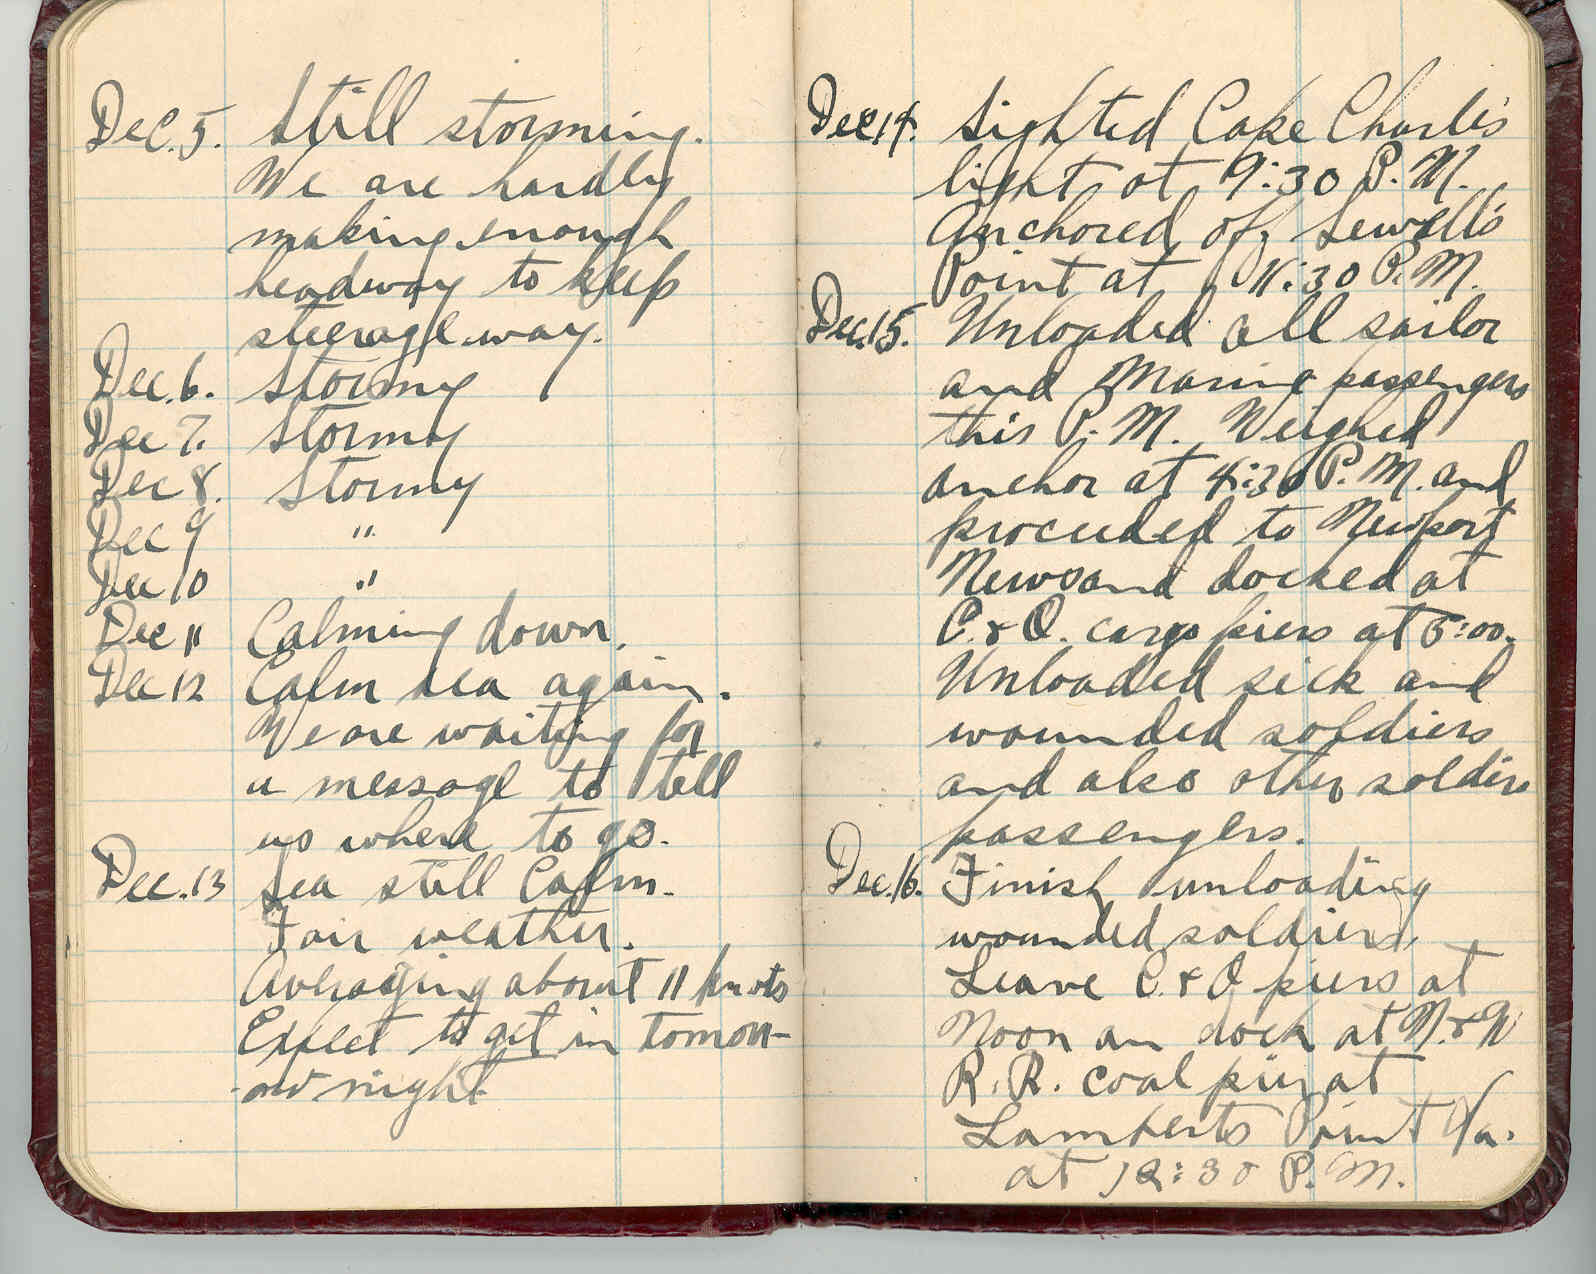 Dec. 5. Still storming.
We are hardly
making enough
headway to keep
steerage way.
Dec. 6. Stormy
Dec 7. Stormy
Dec 8. Stormy
Dec 9 "
Dec 10 "
Dec 11 Calming down.
Dec 12 Calm sea again.
We are waiting for
a message to tell
us where to go.
Dec. 13 Sea still Calm.
Fair weather.
Averaging about 11 knots
Expect to get in tomorr-
ow night.
Dec 14. Sighted Cape Charles
light at 9:30 P.M.
Anchored off Sewell's
Point at 11:30 P.M.
Dec. 15. Unloaded all sailor
and Marine passengers
this P.M. Weighed
anchor at 4:30 P.M. and
proceeded to Newport
News and docked at
C. & O. cargo piers at 5:00.
Unloaded sick and
wounded soldiers
and also other soldier
passengers.
Dec. 16. Finish unloading
wounded soldiers.
Leave C. & O piers at
Noon an dock at N. & W
R. R. coal pier at
Lamberts Point Va.
at 12:30 P.M.